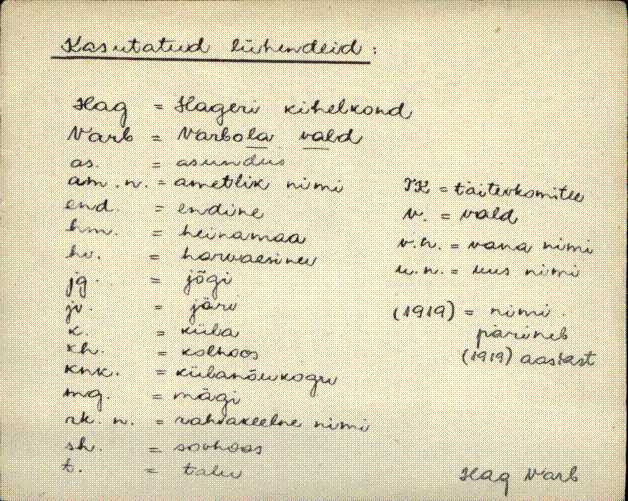 Kasutatud lühendeid:
Hag = Hageri kihelkond
Varb = Varbola vald
as. = asundus
am. n. = ametlik nimi
end. = endine
hm. = heinamaa
hv. = harvaesinev
jg. = jõgi
jv. = järv
k. = küla
kh. = kolhoos
knk. = külanõukogu
mg. = mägi
rk. n. = rahvakeelne nimi
sh. = sovhoos
t. = talu
TK = täitevkomitee
v. = vald
v.n. = vana nimi
u.n. = uus nimi
(1919) = nimi
pärineb
(1919) aastast
Hag Varb